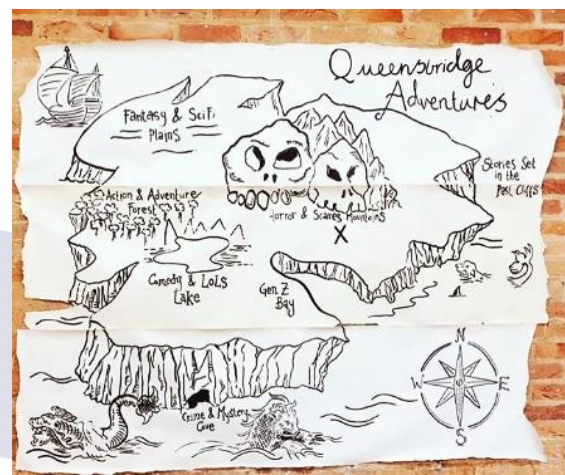 Queensbridge
Adventures
Fantasy & SciFi
Plains
Stories Set
in the
Past Cliffs
Action & Adventure
Forest
Horror & Scares Mountains
X
Comedy & LOLs
Lake
Gen Z
Bay
N
W E
S
Crime & Mystery
Cove